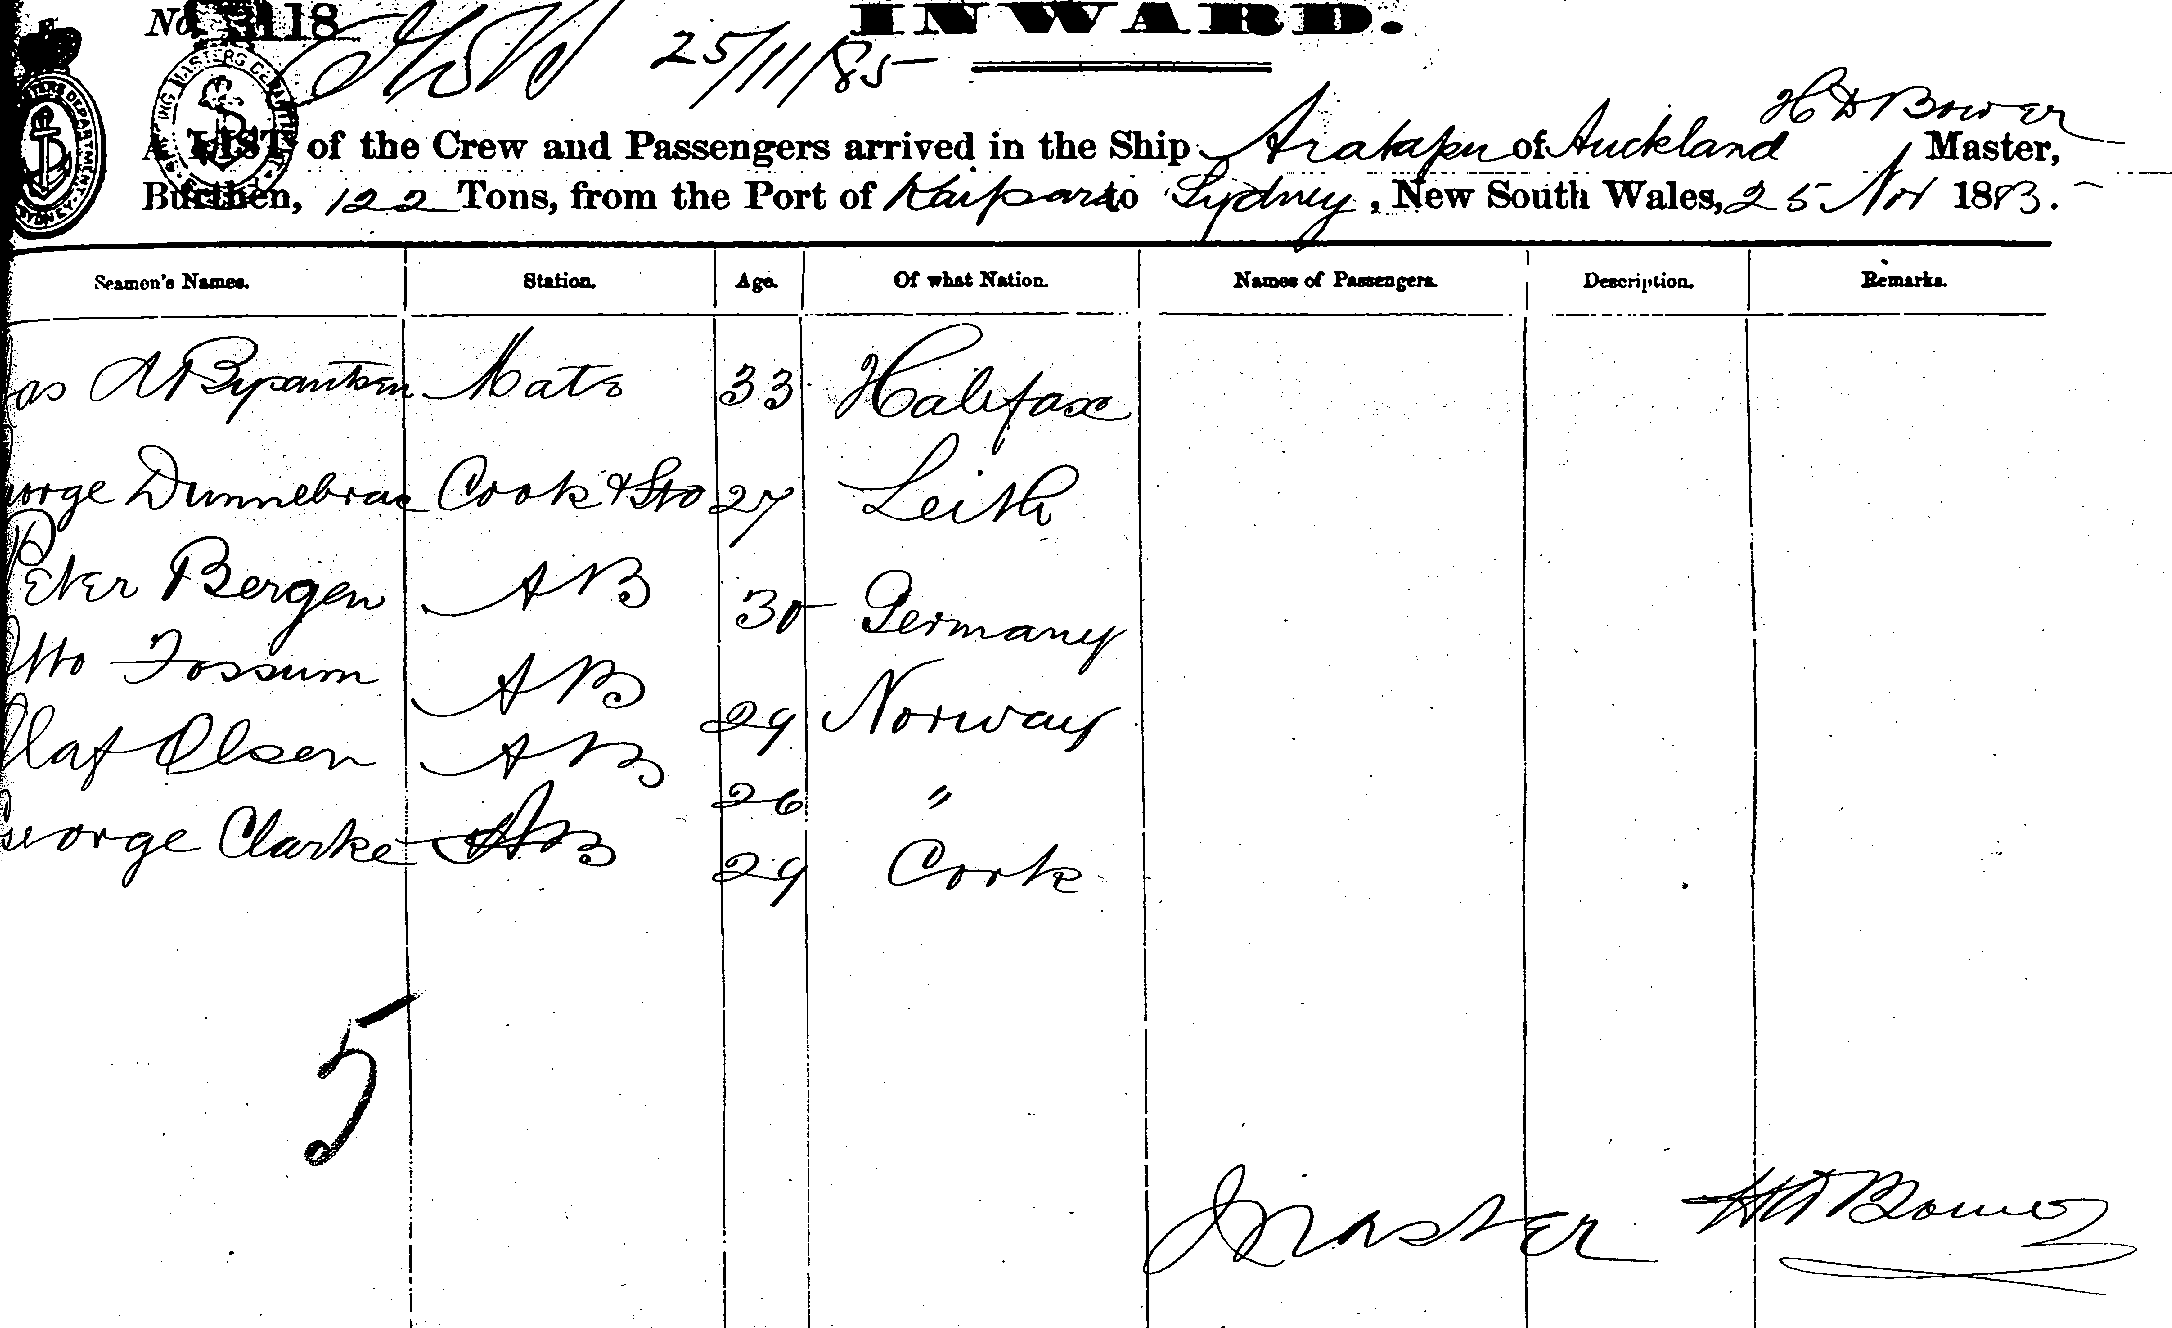 No 118 INWARD.
25/11/85
H D Bower
A LIST of the Crew and Passengers arrived in the Ship Aratapu of Auckland Master,
Burthen, 122 Tons, from the Port of Kaipara to Sydney, New South Wales, 25 Nov 1883.
Seamen's Names. Station. Age. Of what Nation. Names of Passengers. Description. Remarks.
Mate 33 Halifax
George Cook & Std 27 Leith
Peter Bergen AB 30 Germany
Otto Fossum AB 29 Norway
Olaf Olsen AB 26 "
George Clarke AB 29 Cork
5
Master H D Bower